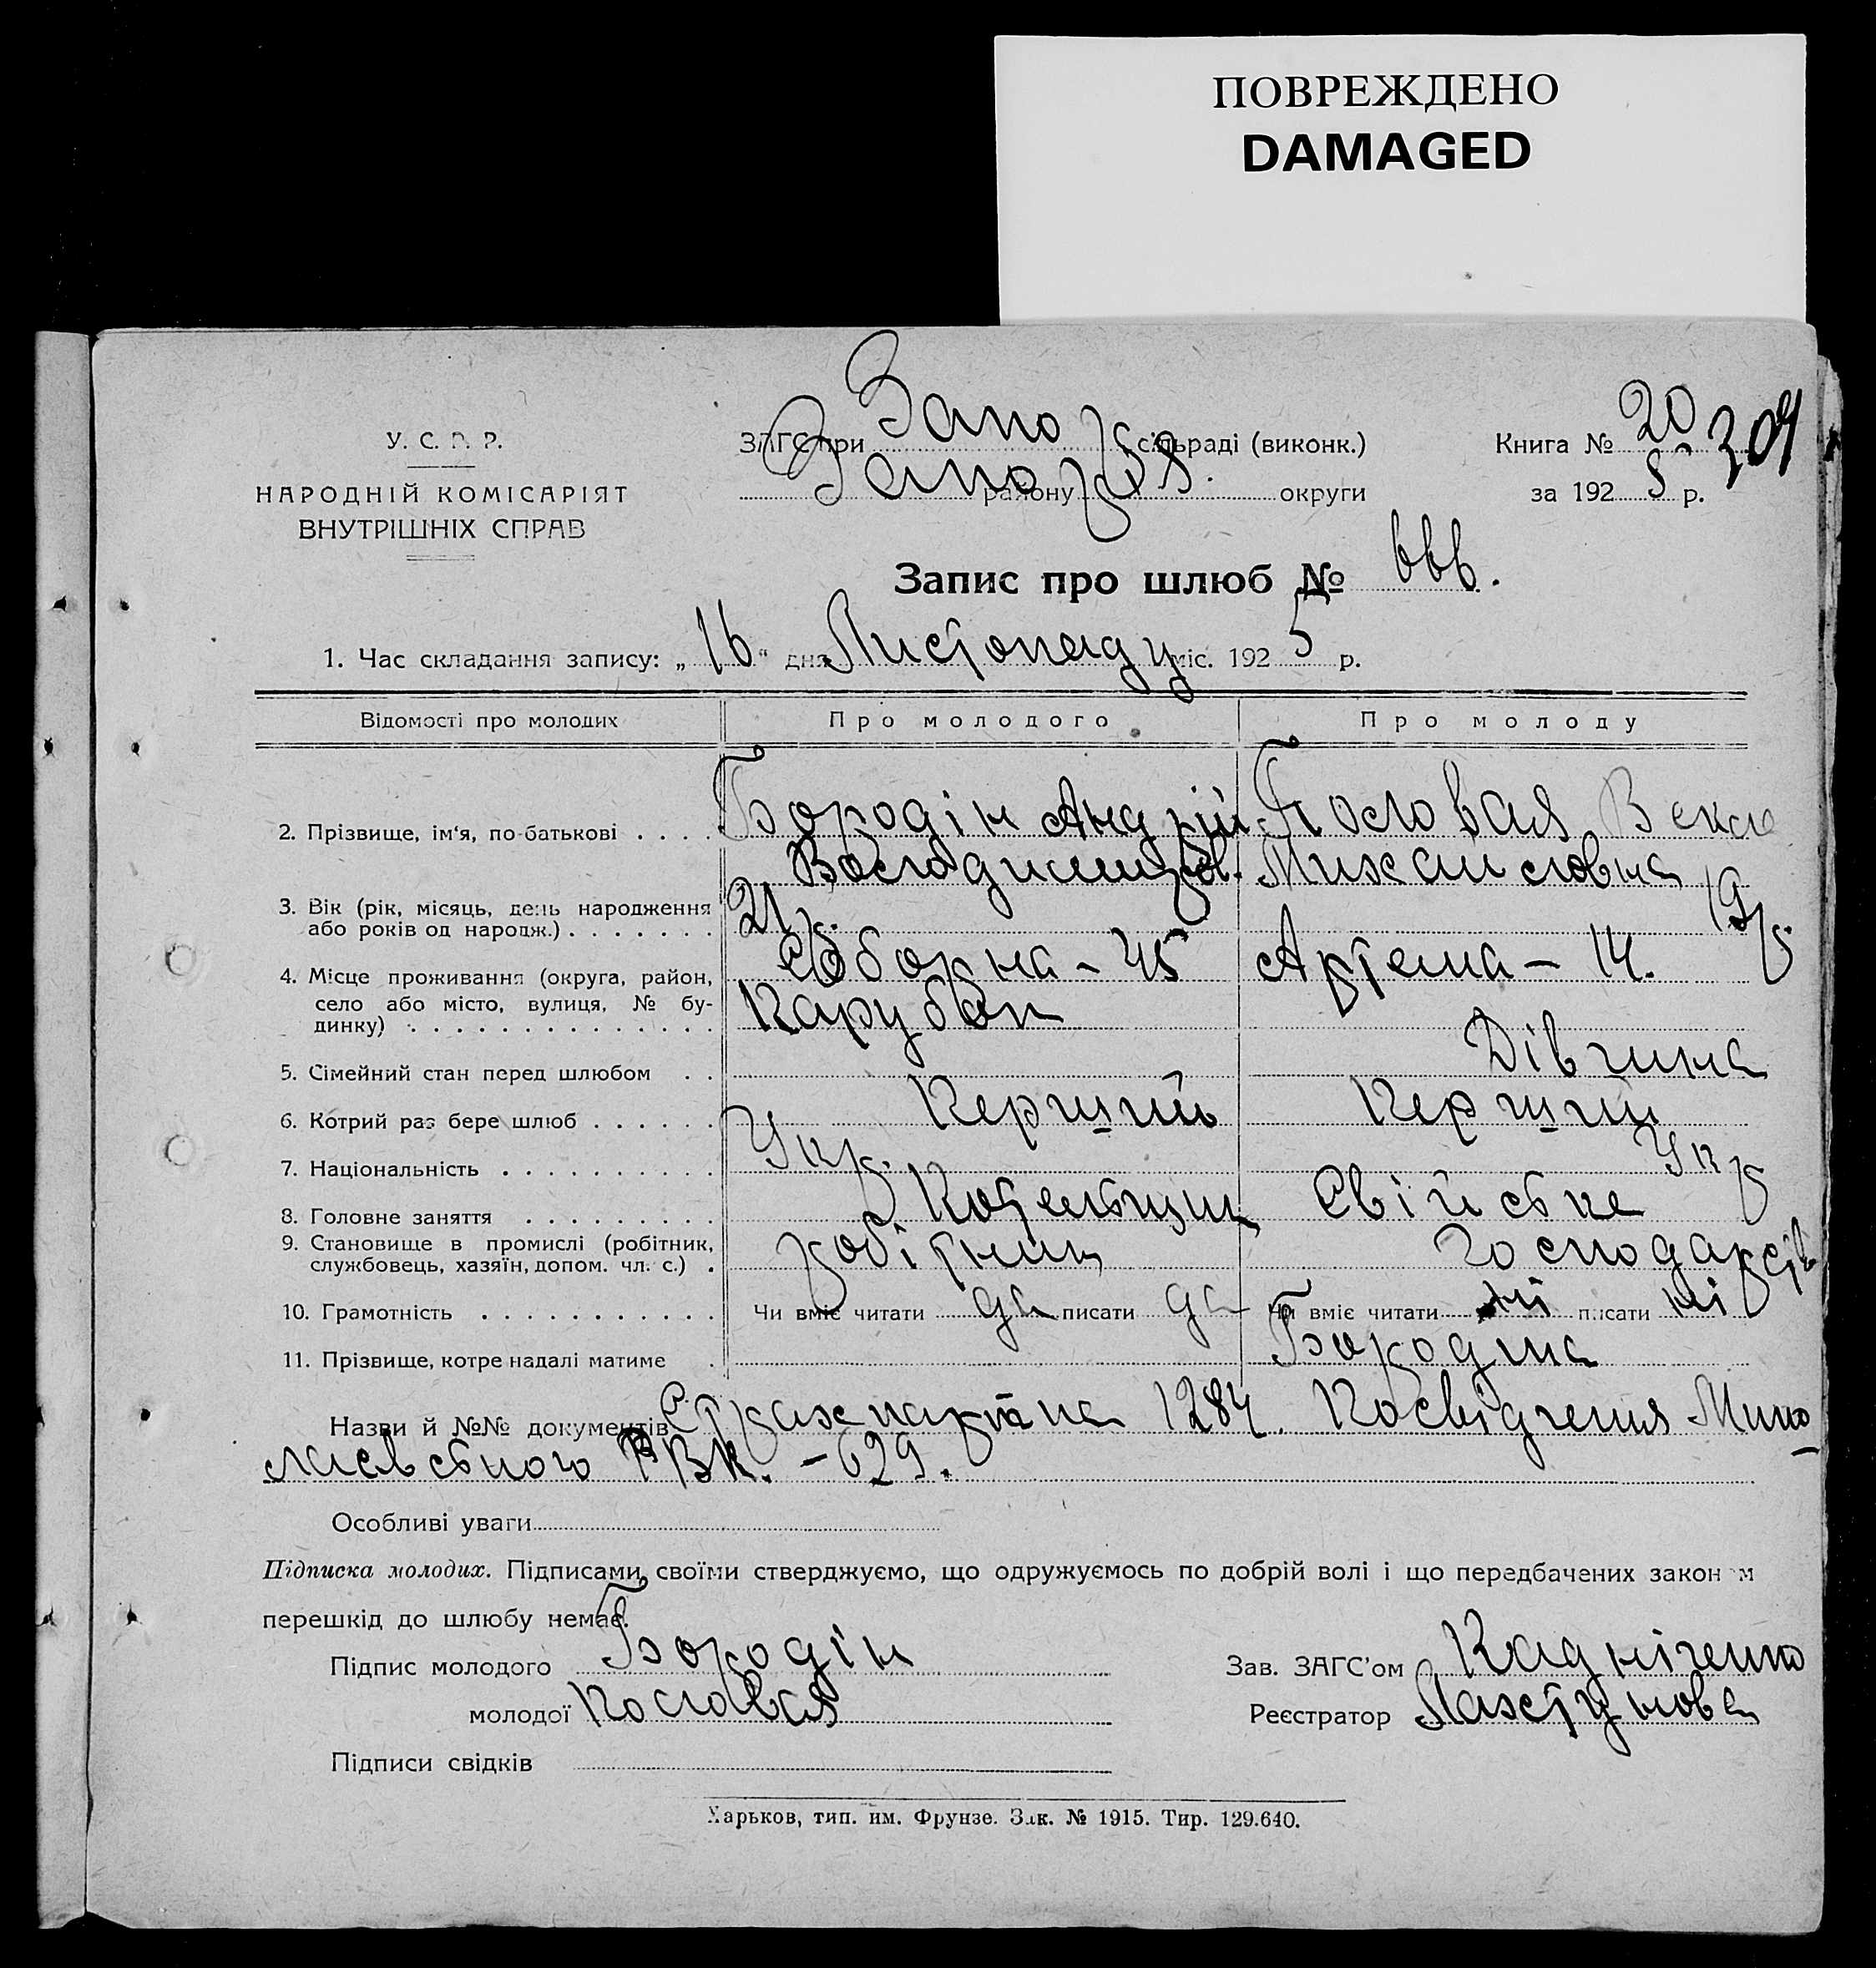 ПОВРЕЖДЕНО
DAMAGED
У. С. Р. Р.
НАРОДНІЙ КОМІСАРІЯТ
ВНУТРІШНІХ СПРАВ
ЗАГС при Запор сільраді (виконк.)
Запор району округи
Книга № 20 304
за 1925 р.
Запис про шлюб № 666.
1. Час складання запису: „16“ дня Листопаду міс. 1925 р.
Відомості про молодих Про молодого Про молоду
2. Прізвище, ім'я, по-батькові . . . . Бородін Андрій Пословая
Володимиров. Михайловна
3. Вік (рік, місяць, день народження 21 р. 19 р.
або років од народж.) . . . . . . .
4. Місце проживання (округа, район, Соборна - 45 Артема - 14.
село або місто, вулиця, № бу-
динку) . . . . . . . . . . . . . . Парубок
5. Сімейний стан перед шлюбом . . Дівчина
6. Котрий раз бере шлюб . . . . . . Перший Перший
7. Національність . . . . . . . . . . Укр. Укр
8. Головне заняття . . . . . . . . . Котельщик Свійське
9. Становище в промислі (робітник, робітник господарств
службовець, хазяїн, допом. чл. с.) .
10. Грамотність . . . . . . . . . . . Чи вміє читати да писати да Чи вміє читати ні писати ні
11. Прізвище, котре надалі матиме . Бородіна
Назви й №№ документів Страхкартка 1284. Посвідчення Мико
лаєвського РВК. - 629.
Особливі уваги
Підписка молодих. Підписами своїми стверджуємо, що одружуємось по добрій волі і що передбачених законом
перешкід до шлюбу немає.
Підпис молодого Бородін
молодої Пословая
Зав. ЗАГС'ом Кадніченко
Реєстратор Лахтунова
Підписи свідків
Харьков, тип. им. Фрунзе. Зак. № 1915. Тир. 129.640.